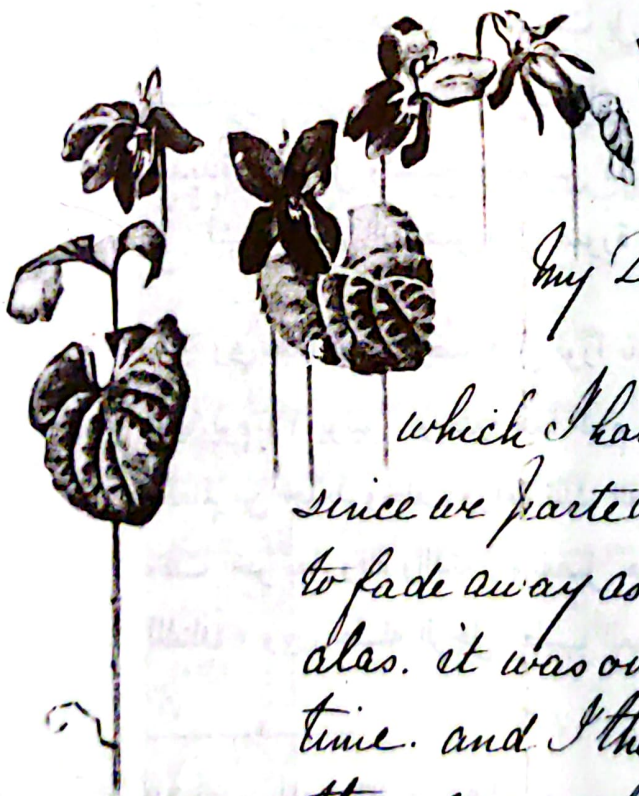 My D
which I ha
since we parte
to fade away as
alas. it was o
time. and I th